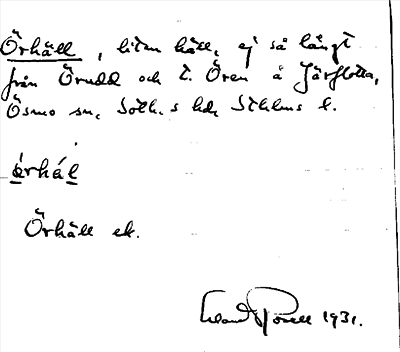 Örhäll, liten häll, ej så långt
från Örudd och t. Ören å Järflotta,
Ösmo sn, Soth.s hd, Sthlms l.
órhál
Örhäll ek.
1931.